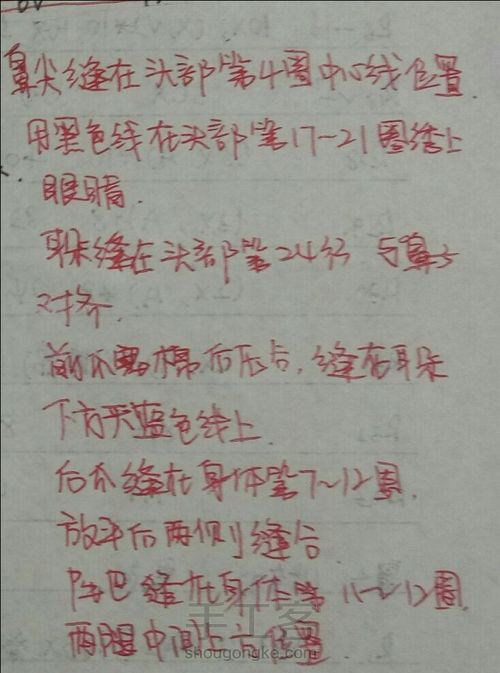 鼻尖缝在头部第4圈中心线位置.
用黑色线在头部第17~21圈缝上
眼睛.
耳朵缝在头部第24行 与鼻子
对齐.
前爪塞棉后压合,缝在耳朵
下方天蓝色线上.
后爪缝在身体第7~12圈.
放平后两侧缝合
尾巴缝在身体第11~12圈.
两腿中间上方位置
手工客
shougongke.com